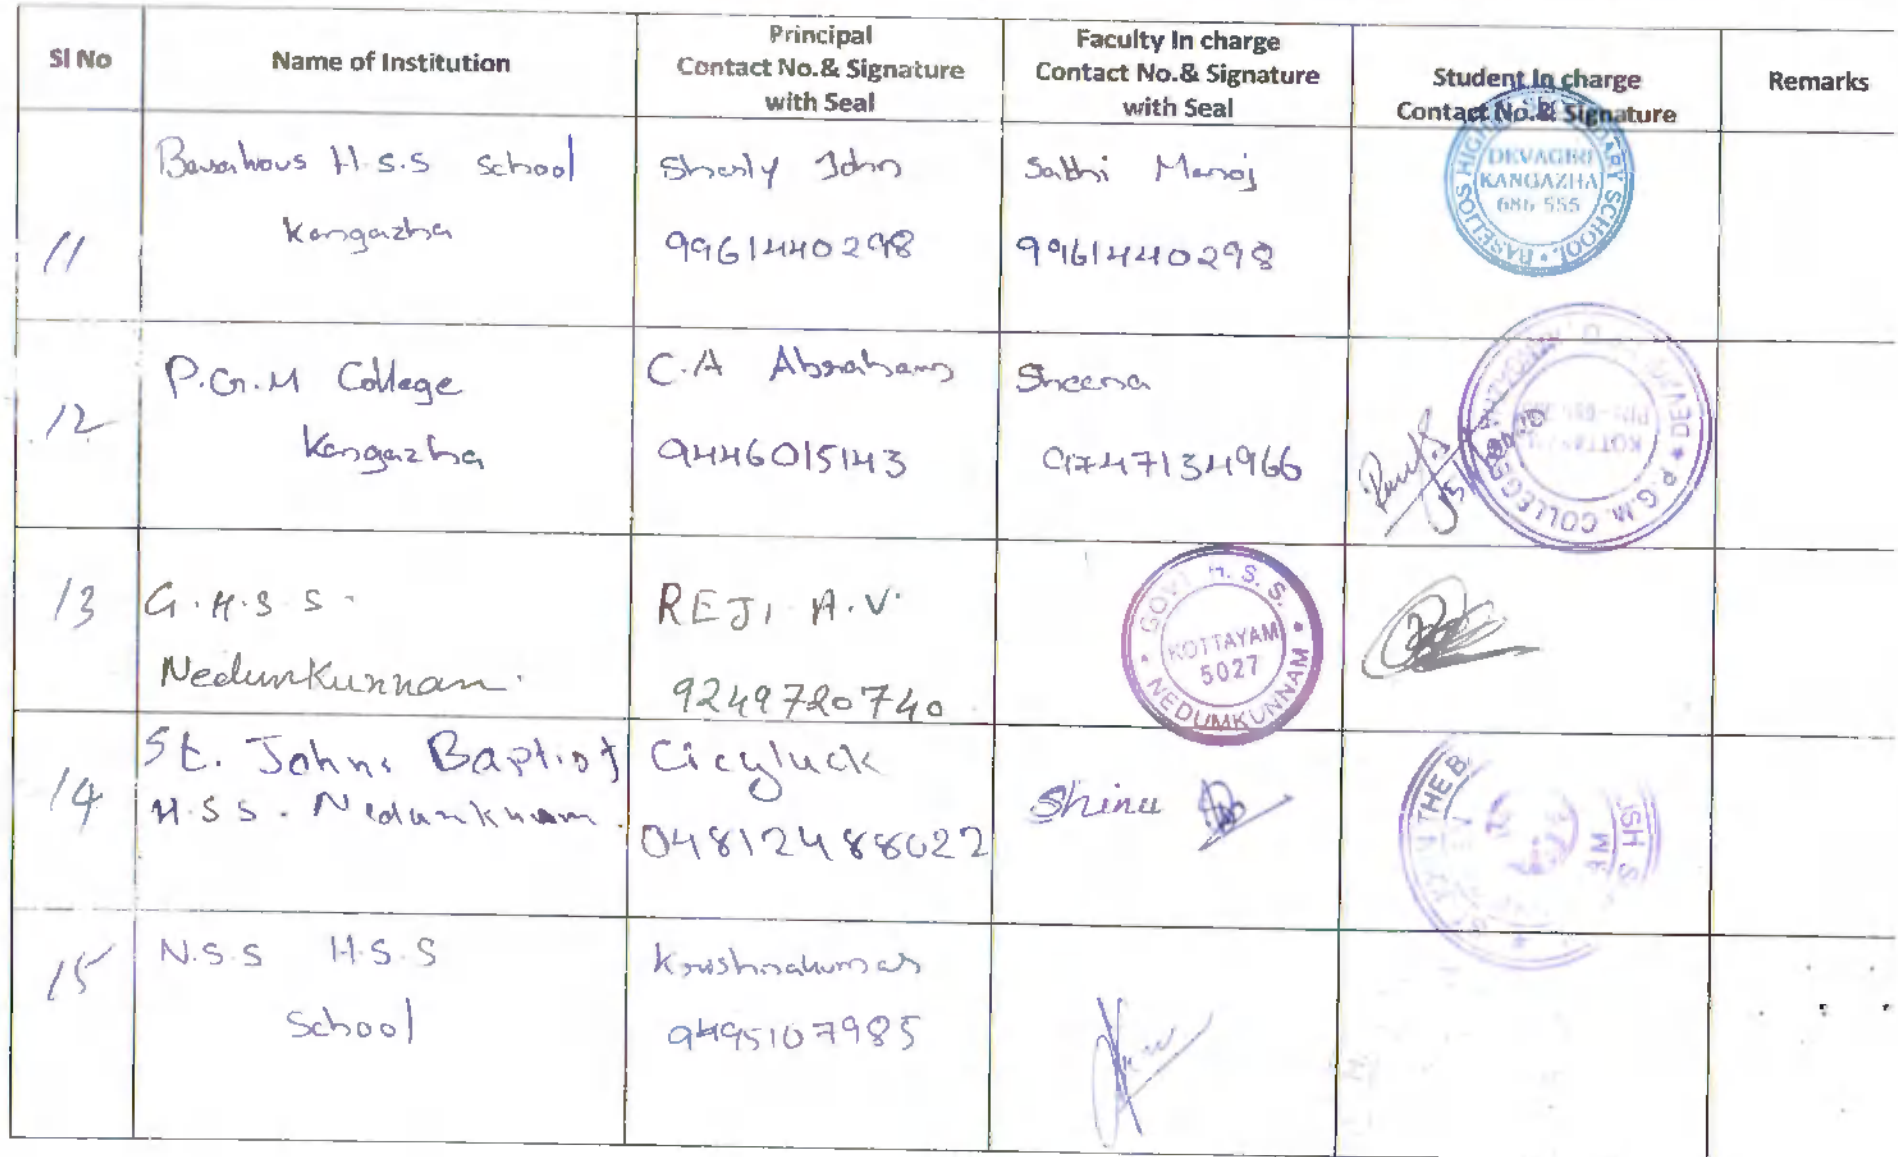 Sl No
Name of Institution
Principal
Contact No.& Signature
with Seal
Faculty In charge
Contact No.& Signature
with Seal
Student In charge
Contact No.& Signature
Remarks
11
H.S.S School
Kangazha
Sherly John
9961440298
Sathi Manoj
9961440298
BASELIOS HIGHER SECONDARY SCHOOL
DEVAGIRI
KANGAZHA
686 555
12
P.G.M College
Kangazha
C.A Abraham
9446015143
Sheena
9747134966
P.G.M. COLLEGE
KOTTAYAM
13
G.H.S S.
Nedumkunnam.
REJI A.V.
9249720740
GOVT H.S.S.
KOTTAYAM
5027
NEDUMKUNNAM
14
St. Johns Baptist
H.S.S. Nedunknam.
Cicyluck
04812488622
Shinu
THE B
15
N.S.S H.S.S
School
Krishnakumar
9495107985